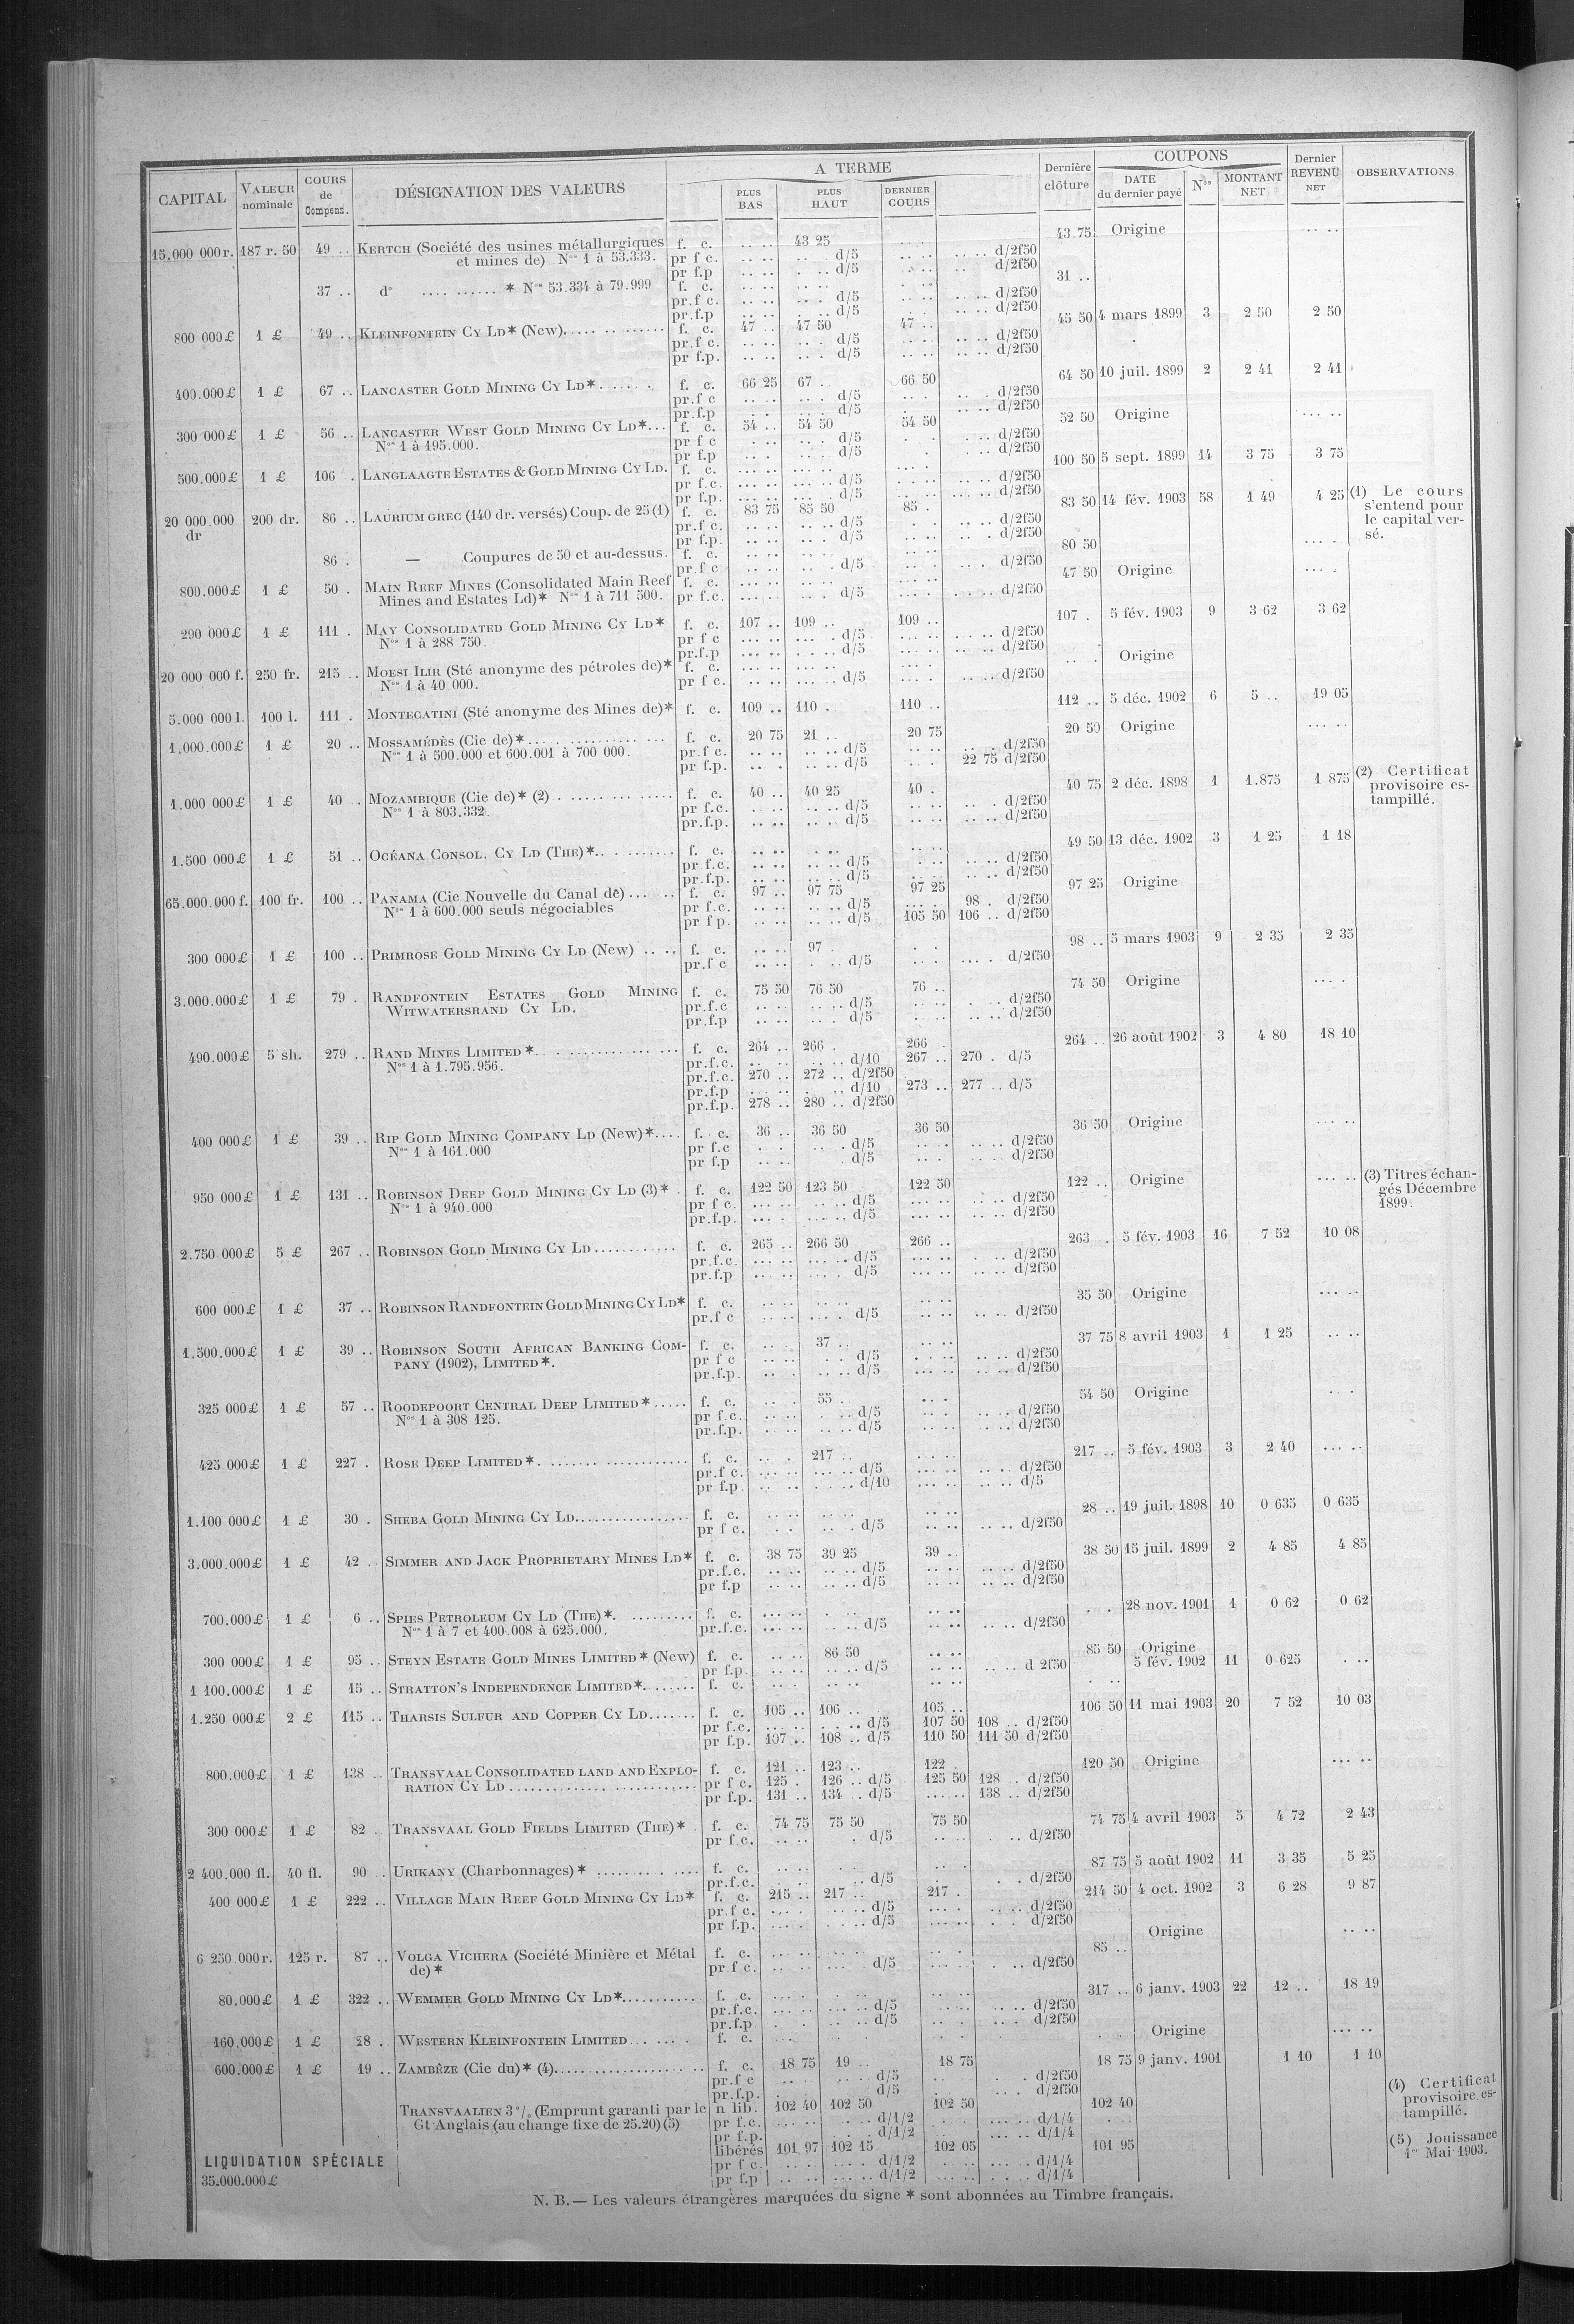 CAPITAL | VALEUR nominale | COURS de Compens. | DÉSIGNATION DES VALEURS | A TERME | PLUS BAS | PLUS HAUT | DERNIER COURS | Dernière clôture | COUPONS | DATE du dernier payé | Nos | MONTANT NET | Dernier REVENU NET | OBSERVATIONS
15.000 000 r. 187 r. 50 49 .. KERTCH (Société des usines métallurgiques f. c. 43 25 43 75 Origine
et mines de) Nos 1 à 53.333. pr f c. d/5 d/2f50
pr f.p d/5 d/2f50
37 .. do * Nos 53.334 à 79.999 f. c. 31 ..
pr.f c. d/5 d/2f50
pr.f.p d/5 d/2f50
800 000 £ 1 £ 49 .. KLEINFONTEIN CY LD* (New) f. c. 47 .. 47 50 47 .. 45 50 4 mars 1899 3 2 50 2 50
pr.f c. d/5 d/2f50
pr f.p. d/5 d/2f50
400.000 £ 1 £ 67 .. LANCASTER GOLD MINING CY LD* f. c. 66 25 67 .. 66 50 64 50 10 juil. 1899 2 2 41 2 41
pr.f c d/5 d/2f50
pr.f.p d/5 d/2f50
300 000 £ 1 £ 56 .. LANCASTER WEST GOLD MINING CY LD* f. c. 54 .. 54 50 54 50 52 50 Origine
Nos 1 à 195.000. pr f c d/5 d/2f50
pr f.p d/5 d/2f50
500.000 £ 1 £ 106 . LANGLAAGTE ESTATES & GOLD MINING CY LD. f. c. 100 50 5 sept. 1899 14 3 75 3 75
pr f c. d/5 d/2f50
pr f.p. d/5 d/2f50
20 000.000 dr 200 dr. 86 .. LAURIUM GREC (140 dr. versés) Coup. de 25 (1) f. c. 83 75 85 50 85 . 83 50 14 fév. 1903 58 1 49 4 25 (1) Le cours s'entend pour le capital versé.
pr.f c. d/5 d/2f50
pr f.p. d/5 d/2f50
86 . — Coupures de 50 et au-dessus. f. c. 80 50
pr.f c d/5 d/2f50
800.000 £ 1 £ 50 . MAIN REEF MINES (Consolidated Main Reef f. c. 47 50 Origine
Mines and Estates Ld)* Nos 1 à 711 500. pr f.c. d/5 d/2f50
290 000 £ 1 £ 111 . MAY CONSOLIDATED GOLD MINING CY LD* f. c. 107 .. 109 .. 109 .. 107 . 5 fév. 1903 9 3 62 3 62
Nos 1 à 288 750. pr f c d/5 d/2f50
pr.f.p d/5 d/2f50
20 000 000 f. 250 fr. 215 .. MOESI ILIR (Sté anonyme des pétroles de)* f. c. Origine
Nos 1 à 40 000. pr f c. d/5 d/2f50
5.000 000 l. 100 l. 111 . MONTECATINI (Sté anonyme des Mines de)* f. c. 109 .. 110 . 110 .. 112 .. 5 déc. 1902 6 5 .. 19 05
1,000.000 £ 1 £ 20 .. MOSSAMÉDÈS (Cie de)* f. c. 20 75 21 .. 20 75 20 50 Origine
Nos 1 à 500.000 et 600.001 à 700 000. pr.f c. d/5 d/2f50
pr f.p. d/5 22 75 d/2f50
1.000 000 £ 1 £ 40 . MOZAMBIQUE (Cie de)* (2) f. c. 40 .. 40 25 40 . 40 75 2 déc. 1898 1 1.875 1 875 (2) Certificat provisoire estampillé.
Nos 1 à 803.332. pr f.c. d/5 d/2f50
pr.f.p. d/5 d/2f50
1.500 000 £ 1 £ 51 .. OCÉANA CONSOL. CY LD (THE)* f. c. 49 50 13 déc. 1902 3 1 25 1 18
pr f.c. d/5 d/2f50
pr.f.p. d/5 d/2f50
65.000.000 f. 100 fr. 100 .. PANAMA (Cie Nouvelle du Canal de) f. c. 97 .. 97 75 97 25 97 25 Origine
Nos 1 à 600.000 seuls négociables pr f.c. d/5 98 . d/2f50
pr f p. d/5 105 50 106 .. d/2f50
300 000 £ 1 £ 100 .. PRIMROSE GOLD MINING CY LD (New) f. c. 97 . 98 .. 5 mars 1903 9 2 35 2 35
pr.f c d/5 d/2f50
3.000.000 £ 1 £ 79 . RANDFONTEIN ESTATES GOLD MINING f. c. 75 50 76 50 76 .. 74 50 Origine
WITWATERSRAND CY LD. pr.f.c d/5 d/2f50
pr.f.p d/5 d/2f50
490.000 £ 5 sh. 279 .. RAND MINES LIMITED* f. c. 264 .. 266 . 266 . 264 .. 26 août 1902 3 4 80 18 10
Nos 1 à 1.795.956. pr.f.c. d/10 267 .. 270 . d/5
pr.f.c. 270 .. 272 .. d/2f50
pr.f.p d/10 273 .. 277 .. d/5
pr.f.p. 278 .. 280 .. d/2f50
400 000 £ 1 £ 39 .. RIP GOLD MINING COMPANY LD (New)* f. c. 36 .. 36 50 36 50 36 50 Origine
Nos 1 à 161.000 pr f.c d/5 d/2f50
pr f.p d/5 d/2f50
950 000 £ 1 £ 131 .. ROBINSON DEEP GOLD MINING CY LD (3)* f. c. 122 50 123 50 122 50 122 .. Origine (3) Titres échangés Décembre 1899.
Nos 1 à 940.000 pr f c. d/5 d/2f50
pr.f.p. d/5 d/2f50
2.750 000 £ 5 £ 267 .. ROBINSON GOLD MINING CY LD f. c. 265 .. 266 50 266 .. 263 . 5 fév. 1903 16 7 52 10 08
pr.f.c. d/5 d/2f50
pr.f.p d/5 d/2f50
600 000 £ 1 £ 37 .. ROBINSON RANDFONTEIN GOLD MINING CY LD* f. c. 35 50 Origine
pr.f c d/5 d/2f50
1.500.000 £ 1 £ 39 .. ROBINSON SOUTH AFRICAN BANKING COM- f. c. 37 .. 37 75 8 avril 1903 1 1 25
PANY (1902), LIMITED*. pr f c d/5 d/2f50
pr.f.p. d/5 d/2f50
325 000 £ 1 £ 57 .. ROODEPOORT CENTRAL DEEP LIMITED* f. c. 55 .. 54 50 Origine
Nos 1 à 308 125. pr f.c. d/5 d/2f50
pr.f.p. d/5 d/2f50
425 000 £ 1 £ 227 . ROSE DEEP LIMITED* f. c. 217 .. 217 .. 5 fév. 1903 3 2 40
pr.f c. d/5 d/2f50
pr f.p. d/10 d/5
1.100 000 £ 1 £ 30 . SHEBA GOLD MINING CY LD f. c. 28 .. 19 juil. 1898 10 0 635 0 635
pr f c. d/5 d/2f50
3.000.000 £ 1 £ 42 . SIMMER AND JACK PROPRIETARY MINES LD* f. c. 38 75 39 25 39 .. 38 50 15 juil. 1899 2 4 85 4 85
pr.f.c. d/5 d/2f50
pr f.p d/5 d/2f50
700.000 £ 1 £ 6 .. SPIES PETROLEUM CY LD (THE)* f. c. 28 nov. 1901 1 0 62 0 62
Nos 1 à 7 et 400.008 à 625.000. pr.f.c. d/5 d/2f50
300 000 £ 1 £ 95 .. STEYN ESTATE GOLD MINES LIMITED* (New) f. c. 86 50 85 50 Origine
pr f.p. d/5 d 2f50 5 fév. 1902 11 0 625
1 100.000 £ 1 £ 15 .. STRATTON'S INDEPENDENCE LIMITED* f. c.
1.250 000 £ 2 £ 115 .. THARSIS SULFUR AND COPPER CY LD f. c. 105 .. 106 .. 105 .. 106 50 11 mai 1903 20 7 52 10 03
pr f.c. d/5 107 50 108 .. d/2f50
pr f.p. 107 .. 108 .. d/5 110 50 111 50 d/2f50
800.000 £ 1 £ 138 .. TRANSVAAL CONSOLIDATED LAND AND EXPLO- f. c. 121 .. 123 .. 122 .. 120 50 Origine
RATION CY LD pr f c. 125 . 126 .. d/5 125 50 128 .. d/2f50
pr f.p. 131 .. 134 .. d/5 138 .. d/2f50
300 000 £ 1 £ 82 . TRANSVAAL GOLD FIELDS LIMITED (THE)* f. c. 74 75 75 50 75 50 74 75 4 avril 1903 5 4 72 2 43
pr f.c. d/5 d/2f50
2 400.000 fl. 40 fl. 90 . URIKANY (Charbonnages)* f. c. 87 75 5 août 1902 11 3 35 5 25
pr.f.c. d/5 d/2f50
400 000 £ 1 £ 222 .. VILLAGE MAIN REEF GOLD MINING CY LD* f. c. 215 .. 217 .. 217 . 214 50 4 oct. 1902 3 6 28 9 87
pr.f c. d/5 d/2f50
pr f.p. d/5 d/2f50
6 250.000 r. 125 r. 87 .. VOLGA VICHERA (Société Minière et Métal f. c. 85 .. Origine
de)* pr.f c. d/5 d/2f50
80.000 £ 1 £ 322 .. WEMMER GOLD MINING CY LD* f. c. 317 .. 6 janv. 1903 22 12 .. 18 19
pr.f.c. d/5 d/2f50
pr.f.p d/5 d/2f50
160.000 £ 1 £ 28 . WESTERN KLEINFONTEIN LIMITED f. c. Origine
600.000 £ 1 £ 19 .. ZAMBÈZE (Cie du)* (4) f. c. 18 75 19 .. 18 75 18 75 9 janv. 1901 1 10 1 10
pr.f c d/5 d/2f50
pr.f.p. d/5 d/2f50 (4) Certificat provisoire estampillé.
TRANSVAALIEN 3 % (Emprunt garanti par le n lib. 102 40 102 50 102 50 102 40
Gt Anglais (au change fixe de 25.20) (5) pr f.c. d/1/2 d/1/4
pr f.p. d/1/2 d/1/4
libérés 101 97 102 15 102 05 101 95 (5) Jouissance 1er Mai 1903.
LIQUIDATION SPÉCIALE pr f c. d/1/2 d/1/4
35.000.000 £ pr f.p d/1/2 d/1/4
N. B. — Les valeurs étrangères marquées du signe * sont abonnées au Timbre français.